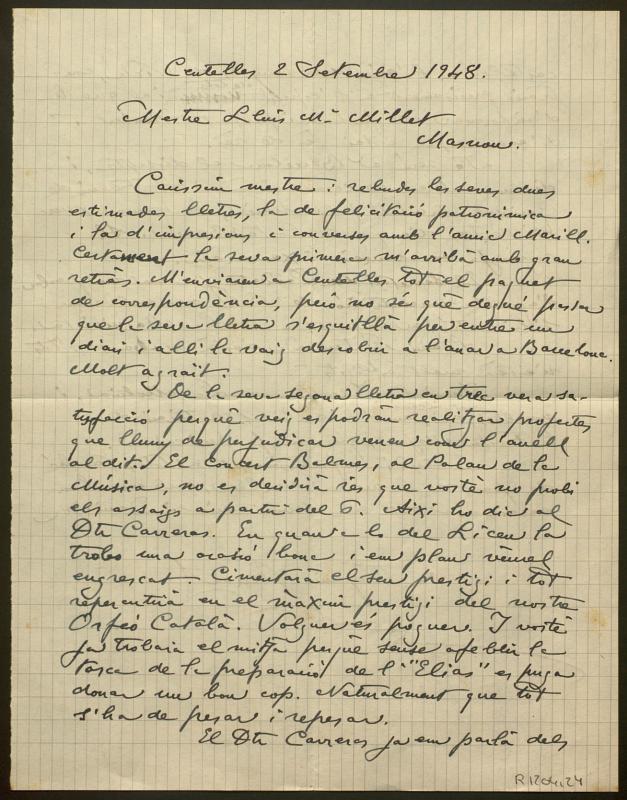 Centelles 2 Setembre 1948.
Mestre Lluis Mª Millet
Masnou.
Caríssim mestre: rebudes les seves dues
estimades lletres, la de felicitació patronímica
i la d'impresions i converses amb l'amic Marill.
Certament la seva primera m'arribà amb gran
retràs. M'enviaren a Centelles tot el paquet
de correspondència, però no sé què degué passar
que la seva lletra s'esquitllà per entre un
diari i allí la vaig descobrir a l'anar a Barcelona.
Molt agrait.
De la seva segona lletra en trec vera sa-
tisfacció perquè veig es podràn realitzar projectes
que lluny de perjudicar venen com l'anell
al dit. El concert Balmes, al Palau de la
Música, no es decidirà res que vostè no probi
els assaigs a partir del 6. Aixi ho dic al
Dtr Carreras. En quan a lo del Liceu la
trobo una ocasió bona i em plau veure'l
engrescat. Cimentarà el seu prestigi i tot
repercutirà en el màxim prestigi del nostre
Orfeó Català. Volguer és poguer. I vostè
ja trobarà el mitja perquè sense afeblir la
tasca de la preparació de l'"Elias" es puga
donar un bon cop. Naturalment que tot
s'ha de pesar i repesar.
El Dtr Carreras ja em parlà dels